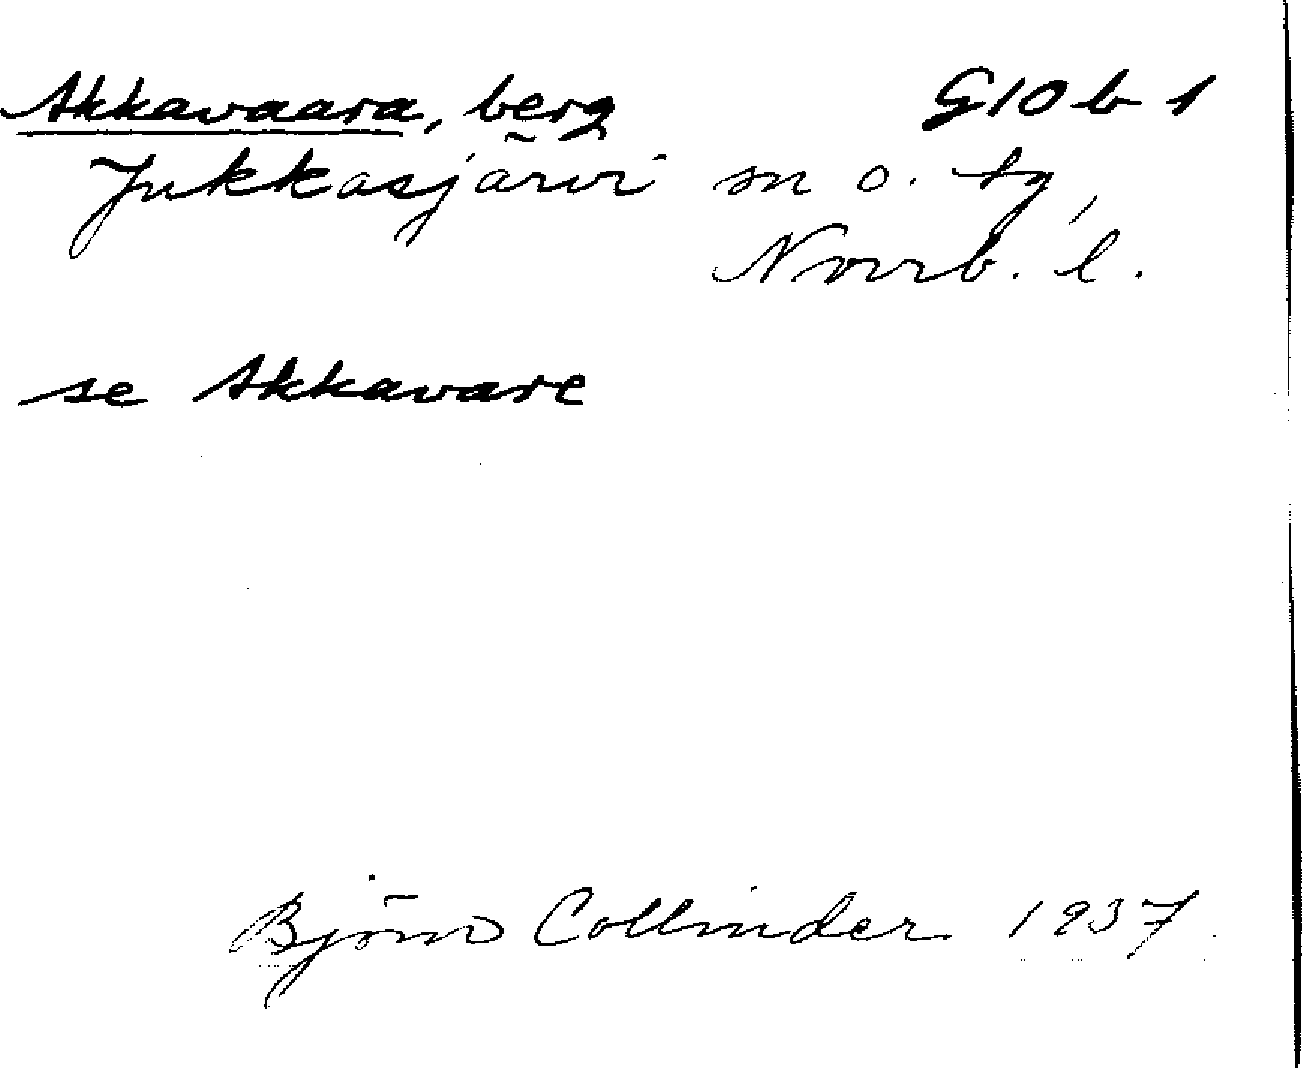 Akkavaara, berg G10 b 1
Jukkasjärvi sn o. tg,
Norrb. l.
se Akkavare
Björn Collinder 1937